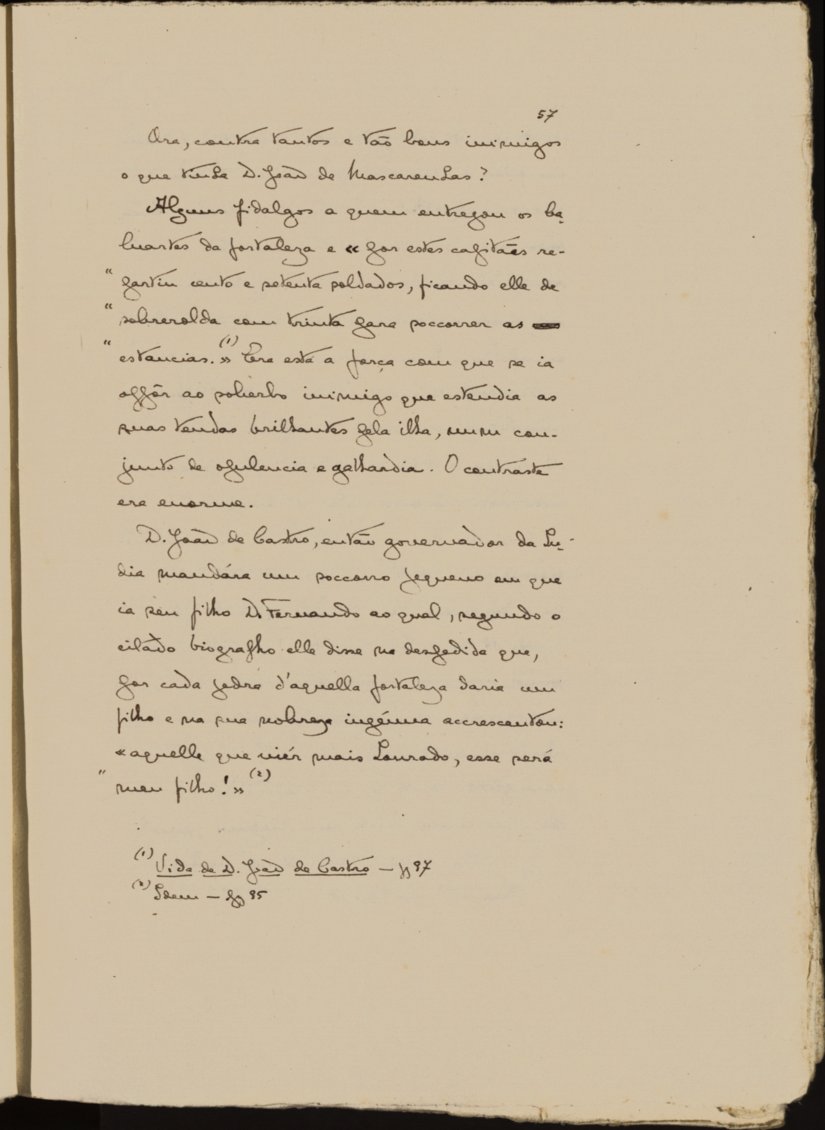 57
Ora, contra tantos e tão bons inimigos
o que tinha D. João de Mascarenhas?
Alguns fidalgos a quem entregou os ba-
luartes da fortaleza e « por estes capitães re-
" partiu cento e setenta soldados, ficando elle de
" sobrerolda com trinta para soccorrer as
" estancias. (1) » Era esta a força com que se ia
oppôr ao soberbo inimigo que estendia as
suas tendas brilhantes pela ilha, num con-
junto de opulencia e galhardia. O contraste
era enorme.
D. João de Castro, então governador da In-
dia mandára um soccorro pequeno em que
ia seu filho D. Fernando ao qual, segundo o
citado biographo elle disse na despedida que,
por cada pedra d'aquella fortaleza daria um
filho e na sua nobreza ingénua accrescentou:
« aquelle que viér mais honrado, esse será
" meu filho! » (2)
(1) Vida de D. João de Castro — pg 97
(2) Idem — pg 95